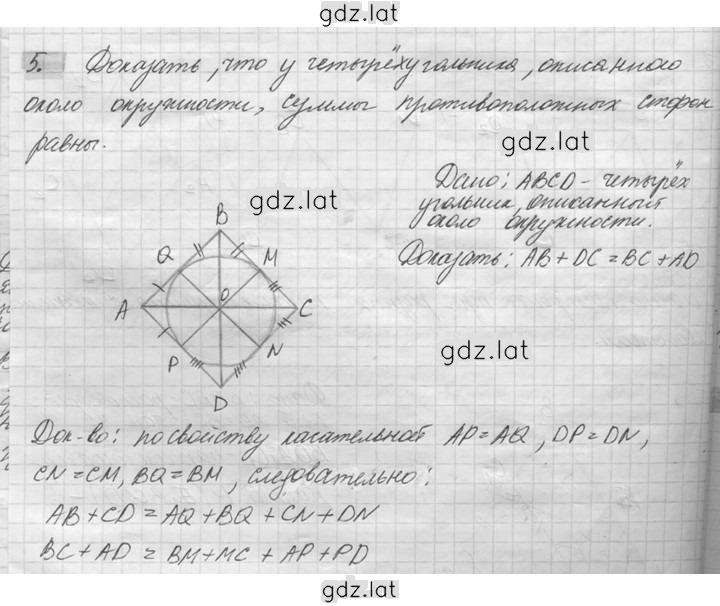 gdz.lat
5. Доказать, что у четырёхугольника, описанного
около окружности, суммы противоположных сторон
равны.
gdz.lat
Дано: ABCD - четырёх
угольник, описанный
около окружности.
Доказать: AB + DC = BC + AD
B
Q
M
O
A
C
P
N
D
gdz.lat
Док-во: по свойству касательной AP = AQ, DP = DN,
CN = CM, BQ = BM, следовательно:
AB + CD = AQ + BQ + CN + DN
BC + AD = BM + MC + AP + PD
gdz.lat